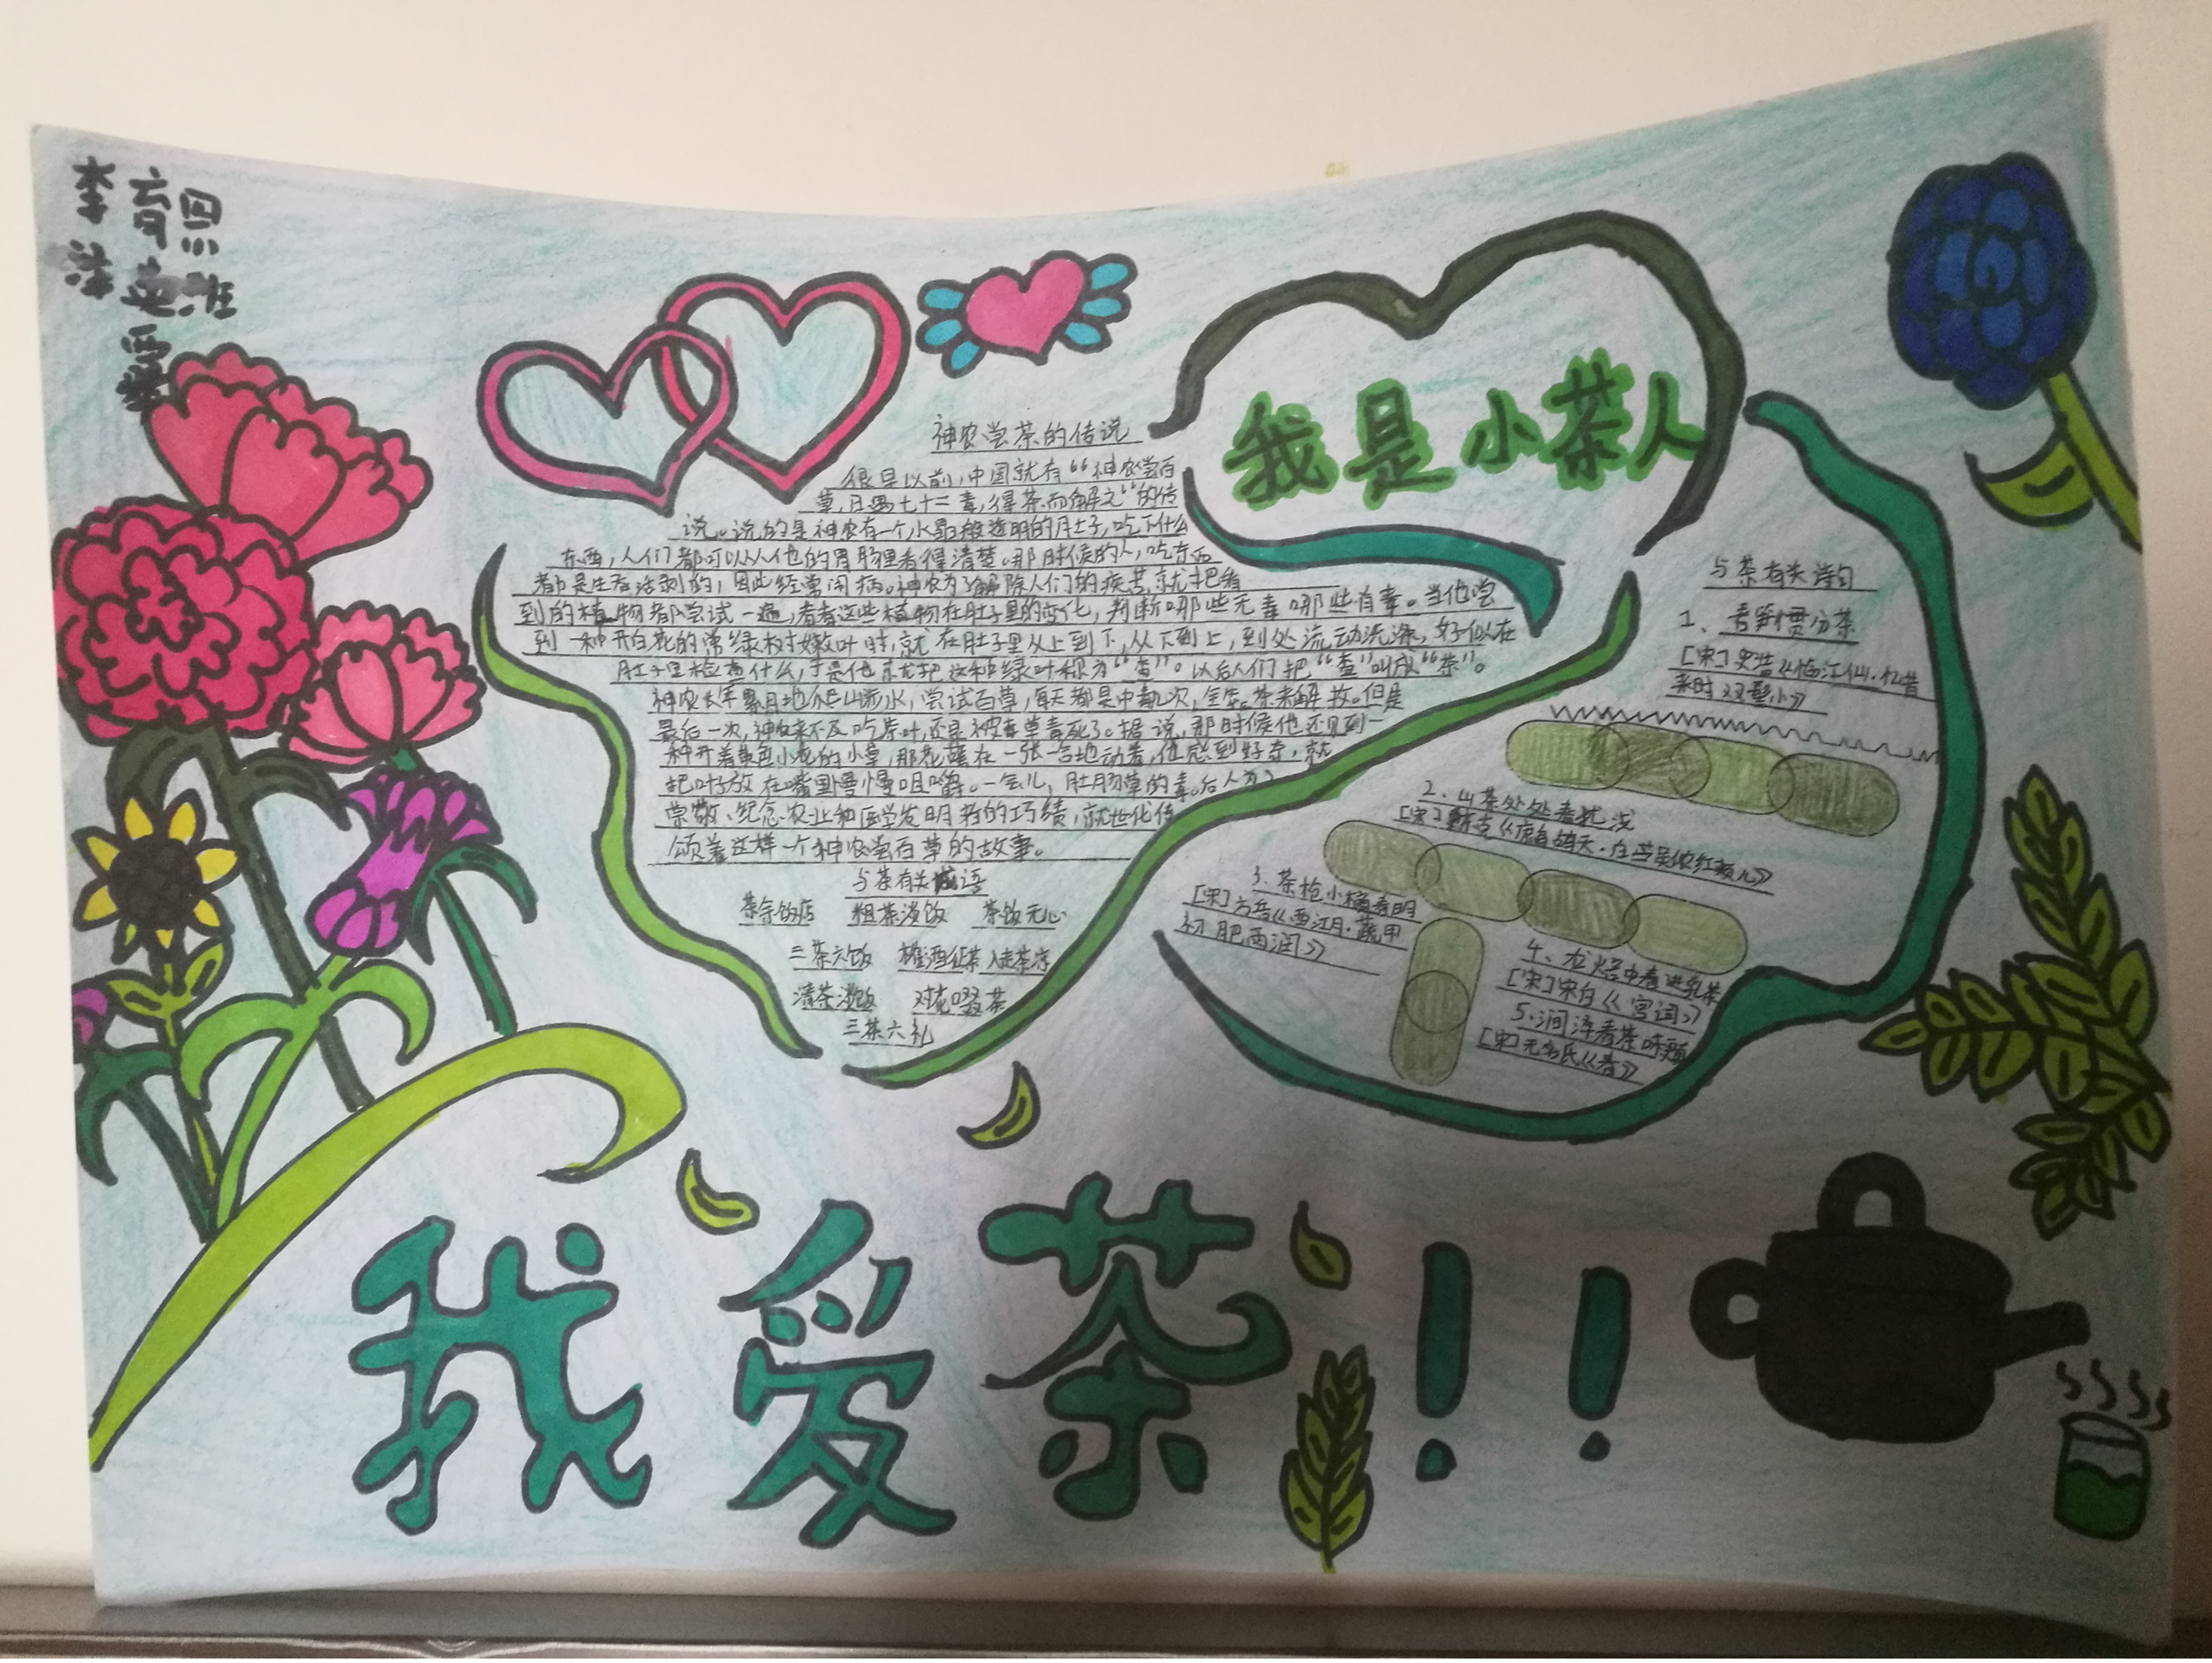 李育恩
我是小茶人
神农尝茶的传说
很早以前,中国就有“神农尝百
草,日遇七十二毒,得茶而解之“的传
说。说的是神农有一个水晶般透明的肚子,吃下什么
东西,人们都可以从他的胃肠里看得清楚。那时候的人,吃东西
都是生吞活剥的,因此经常闹病。神农为了解除人们的疾苦,就把看
到的植物都尝试一遍,看看这些植物在肚子里的变化,判断哪些无毒哪些有毒。当他尝
到一种开白花的常绿树嫩叶时,就在肚子里从上到下,从下到上,到处流动洗涤,好似在
肚子里检查什么,于是他就把这种绿叶称为“查”。以后人们把“查”叫成“茶”。
神农长年累月地爬山涉水,尝试百草,每天都是中毒几次,全安茶来解救。但是
最后一次,神农来不及吃茶叶,还是被毒草毒死了。据说,那时候他还见到一
种开着黄色小花的小草,那花萼在一张一合地动着,他感到好奇,就
把叶子放在嘴里慢慢咀嚼。一会儿,肚肠草的毒。后人为了
崇敬、纪念农业和医学发明者的巧绩,就世代传
颂着这样一个神农尝百草的故事。
与茶有关成语
茶余饭后 粗茶淡饭 茶饭无心
三茶六饭 榷酒征茶 人走茶凉
清茶淡饭 对花啜茶
三茶六礼
与茶有关诗句
1、看笋惯分茶
[宋]史浩《临江仙·忆昔
来时双髻小》
2、山茶处处春犹浅
3、茶枪小摘春明
[宋]方岳《西江月·蔬甲
初肥雨润》
4、龙焙中春进乳茶
[宋]宋白《宫词》
5、涧
[宋]无名氏《春》
我爱茶!!